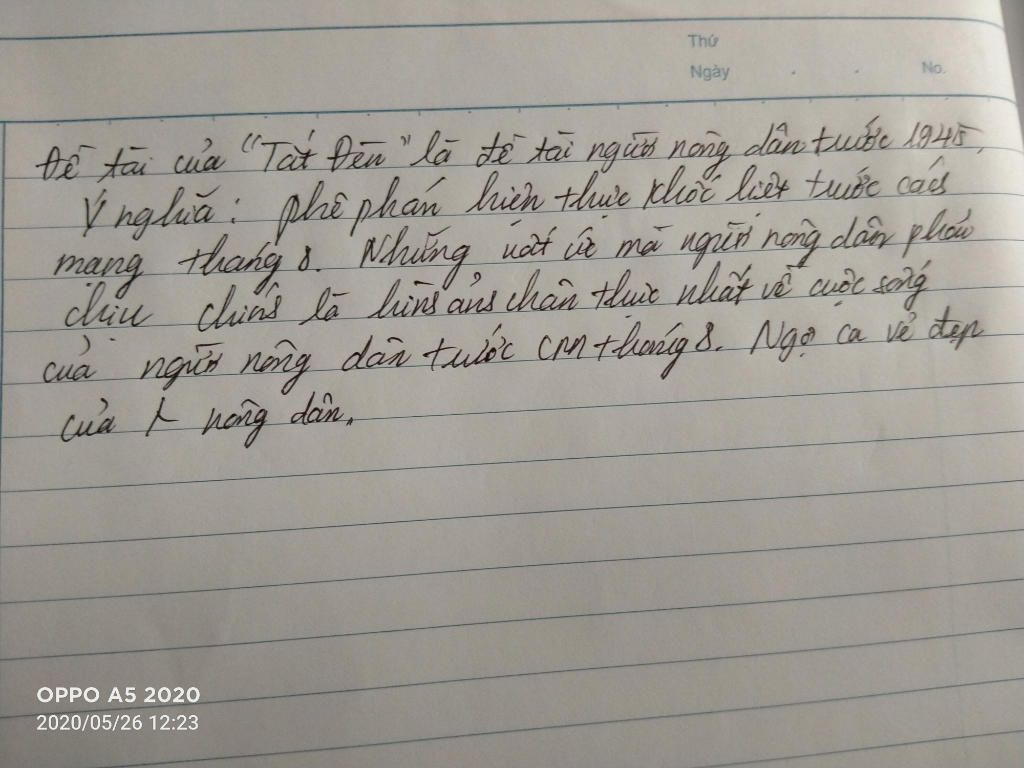 Thứ
Ngày . . No.
Đề tài của "Tắt Đèn" là đề tài người nông dân trước 1945.
Ý nghĩa: phê phán hiện thực khốc liệt trước cách
mạng tháng 8. Những vất vả mà người nông dân phải
chịu chính là hình ảnh chân thực nhất về cuộc sống
của người nông dân trước CM tháng 8. Ngợi ca vẻ đẹp
của nông dân.
OPPO A5 2020
2020/05/26 12:23